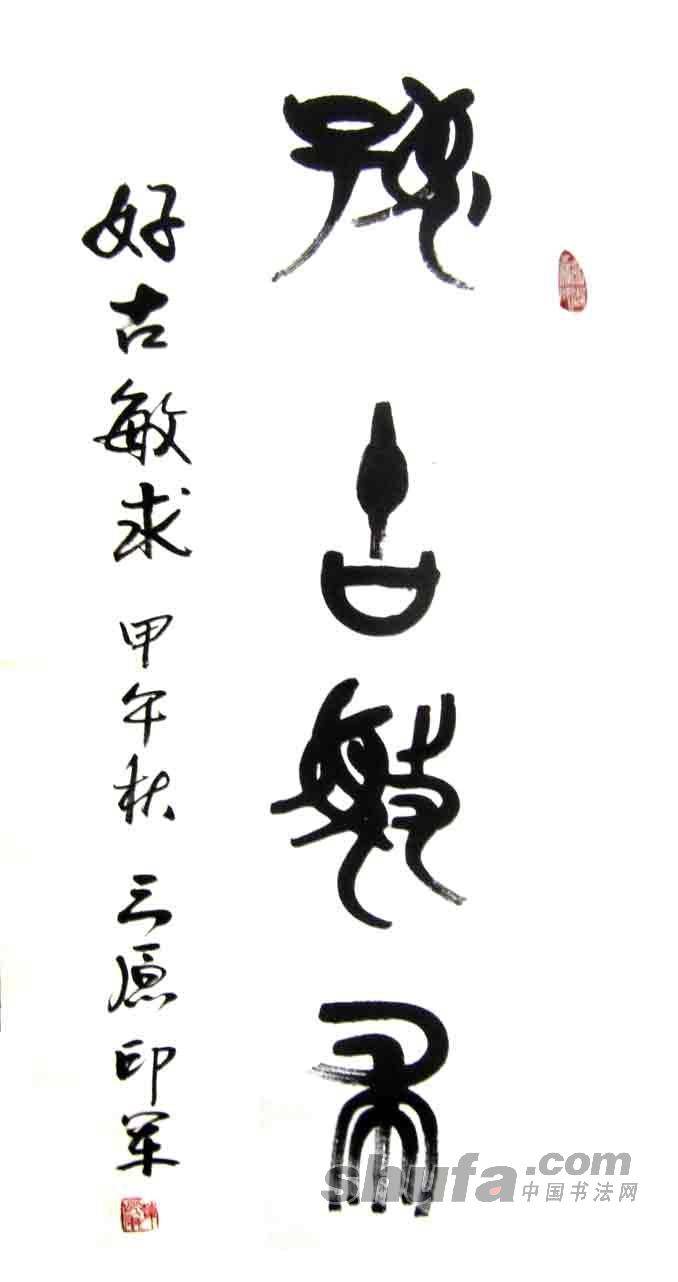 好古敏求
好古敏求 甲午秋 三原印军
shufa.com
中国书法网